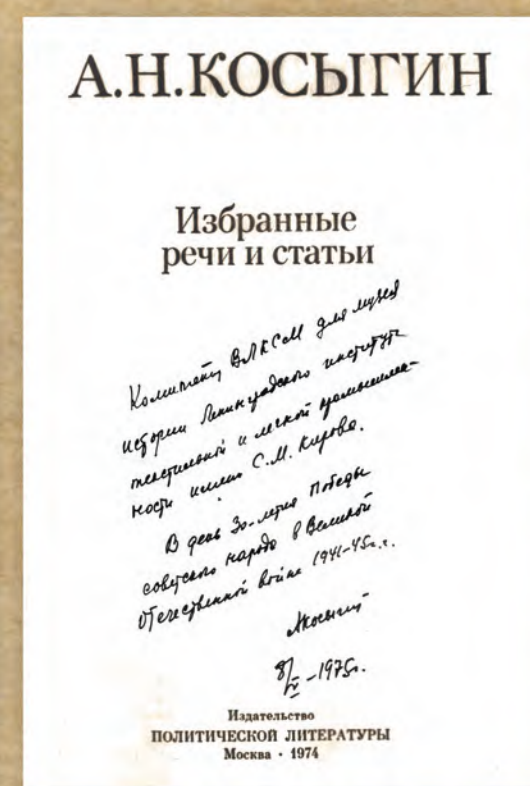 А.Н.КОСЫГИН
Избранные
речи и статьи
Комитету ВЛКСМ для музея
истории Ленинградского института
текстильной и легкой промышлен-
ности имени С.М. Кирова.
В день 30-летия Победы
советского народа в Великой
Отечественной войне 1941-45г.г.
АКосыгин
8/V-1975г.
Издательство
ПОЛИТИЧЕСКОЙ ЛИТЕРАТУРЫ
Москва · 1974